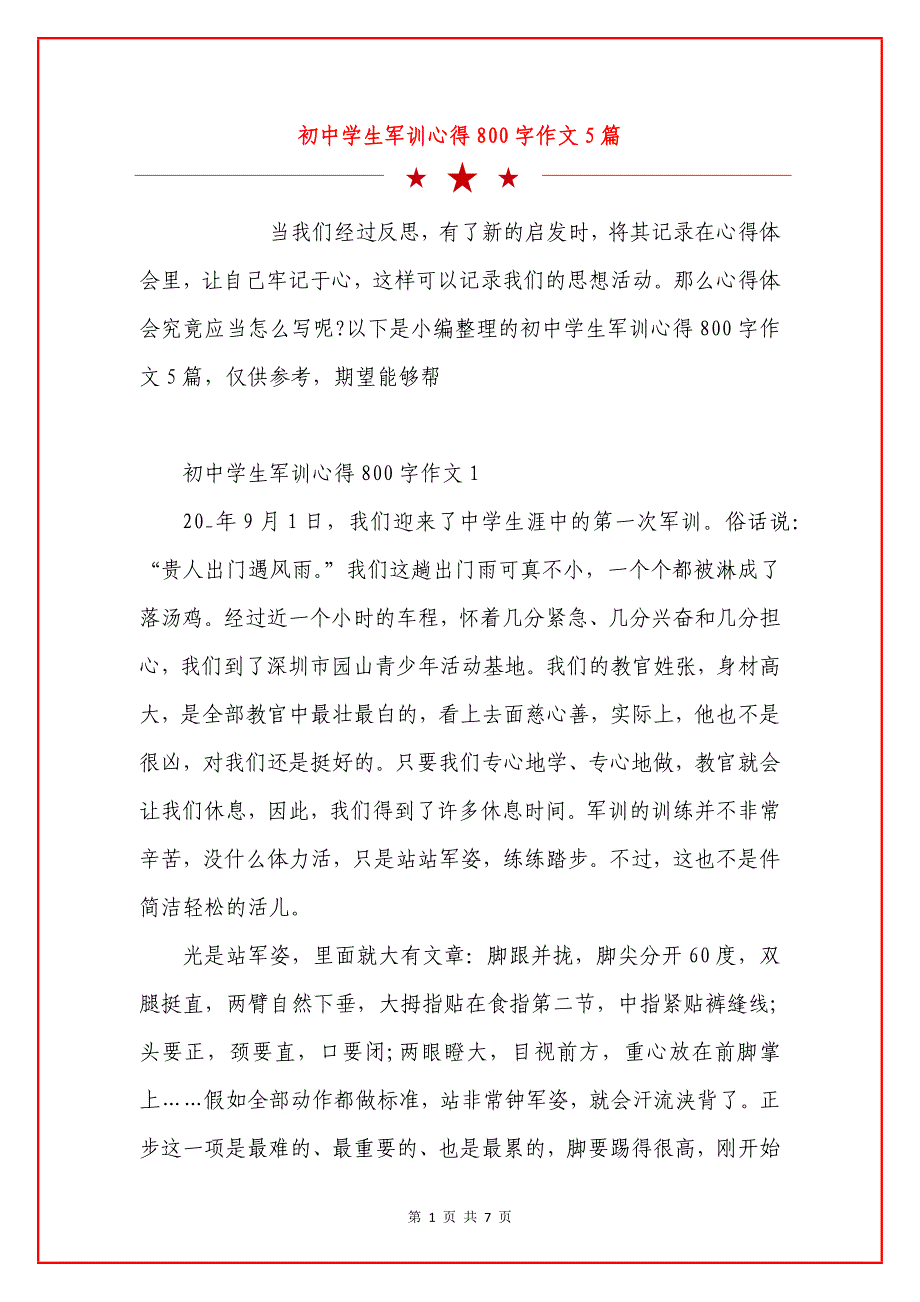 初中学生军训心得800字作文5篇
当我们经过反思，有了新的启发时，将其记录在心得体
会里，让自己牢记于心，这样可以记录我们的思想活动。那么心得体
会究竟应当怎么写呢?以下是小编整理的初中学生军训心得800字作
文5篇，仅供参考，期望能够帮
初中学生军训心得800字作文1
20_年9月1日，我们迎来了中学生涯中的第一次军训。俗话说：
“贵人出门遇风雨。”我们这趟出门雨可真不小，一个个都被淋成了
落汤鸡。经过近一个小时的车程，怀着几分紧急、几分兴奋和几分担
心，我们到了深圳市园山青少年活动基地。我们的教官姓张，身材高
大，是全部教官中最壮最白的，看上去面慈心善，实际上，他也不是
很凶，对我们还是挺好的。只要我们专心地学、专心地做，教官就会
让我们休息，因此，我们得到了许多休息时间。军训的训练并不非常
辛苦，没什么体力活，只是站站军姿，练练踏步。不过，这也不是件
简洁轻松的活儿。
光是站军姿，里面就大有文章：脚跟并拢，脚尖分开60度，双
腿挺直，两臂自然下垂，大拇指贴在食指第二节，中指紧贴裤缝线;
头要正，颈要直，口要闭;两眼瞪大，目视前方，重心放在前脚掌
上……假如全部动作都做标准，站非常钟军姿，就会汗流浃背了。正
步这一项是最难的、最重要的、也是最累的，脚要踢得很高，刚开始
第 1 页 共 7 页